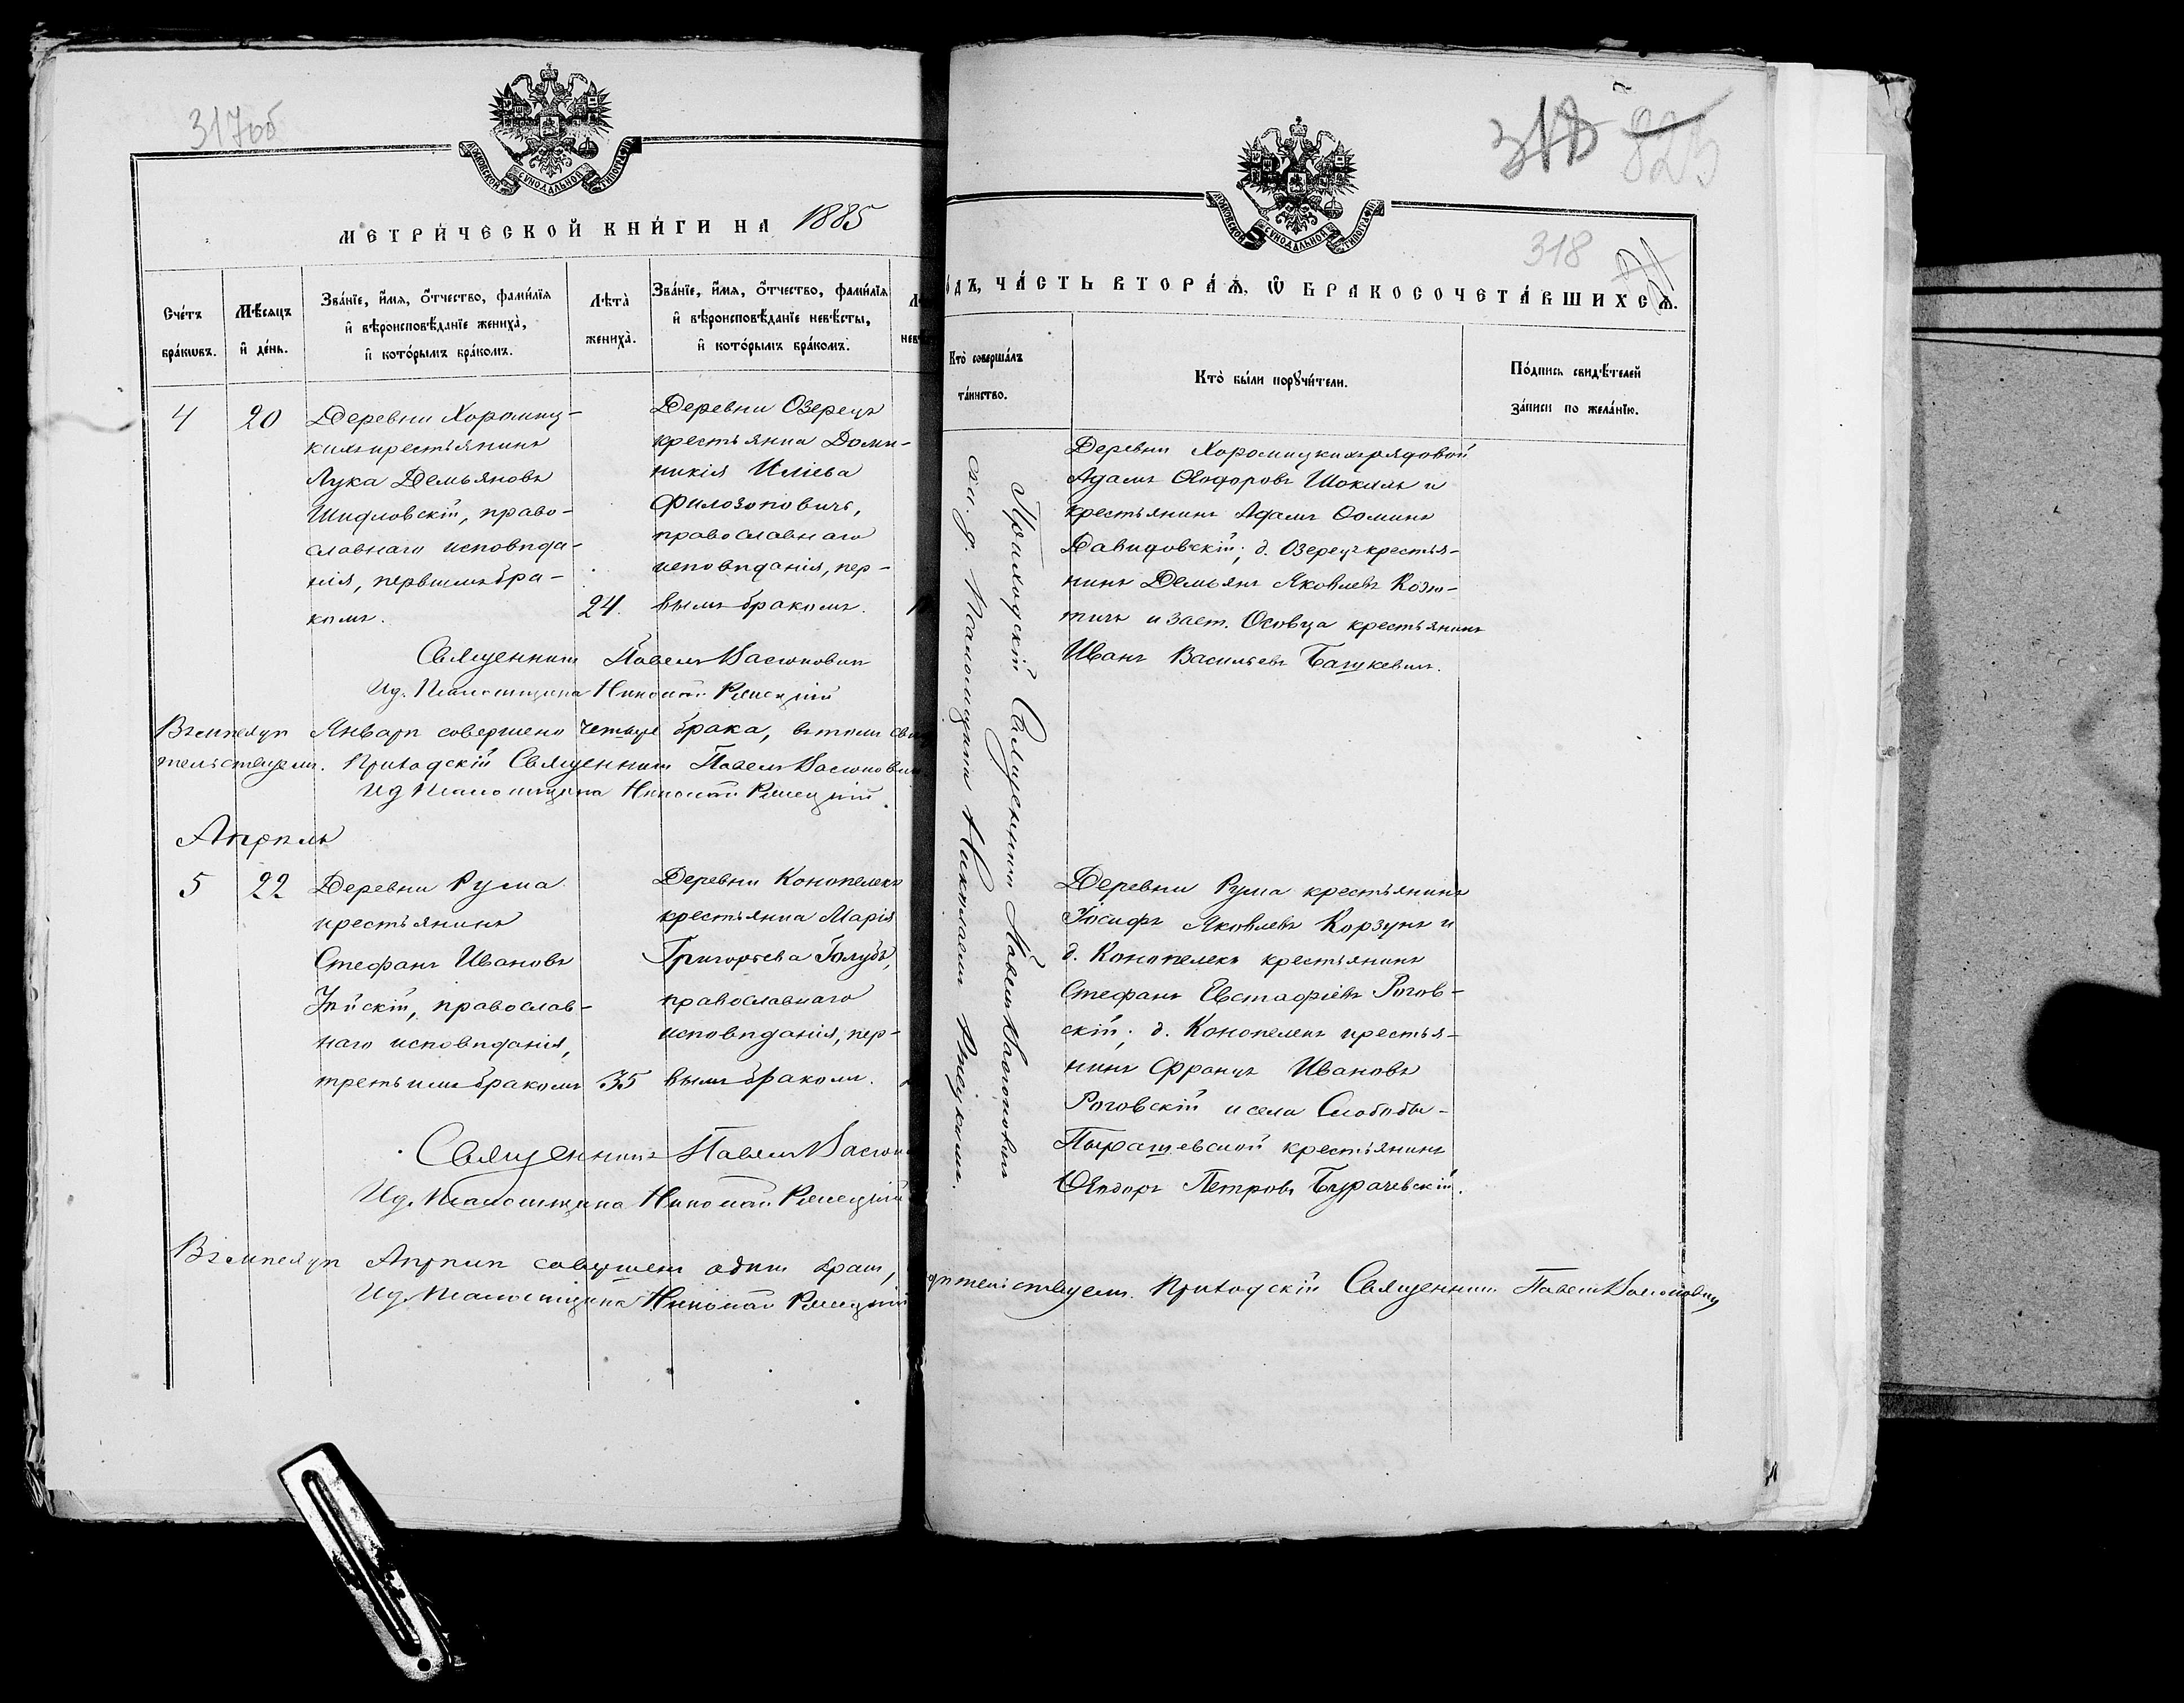 317об
МОСКОВСКОЙ СѴНОДАЛЬНОЙ ТИПОГРАФІИ
МЕТРИ́ЧЕСКОЙ КНИ́ГИ НА 1885
Сче́тъ бра́кωвъ.
Мѣ́сяцъ и҆ де́нь.
Зва́нїе, и҆́мя, ѻ҆́тчество, фами́лїя
и҆ вѣроисповѣ́данїе жениха̀,
и҆ кото́рымъ бра́комъ.
Лѣта̀ жениха̀.
Зва́нїе, и҆́мя, ѻ҆́тчество, фами́лїя
и҆ вѣроисповѣ́данїе невѣ́сты,
и҆ кото́рымъ бра́комъ.
4
20
Деревни Хоромиц-
кихъ крестьянинъ
Лука Демьяновъ
Шидловскій, право-
славнаго исповѣда-
нія, первымъ бра-
комъ.
24.
Деревни Озерецъ
крестьянка Доми-
никія Иліева
Филозоповичъ,
православнаго
исповѣданія, пер-
вымъ бракомъ.
Священникъ Павелъ Васюковичъ
Ид. Псаломщика Николай
Въ мѣсяцѣ Январѣ совершено четыре брака, въ томъ сви
тельствуемъ. Приходскій Священникъ Павелъ Васюкович
Ид Псаломщика Николай
Апрѣль
5
22
Деревни Рума
крестьянинъ
Стефанъ Ивановъ
православ-
наго исповѣданія,
третьимъ бракомъ
35
Деревни Конопелекъ
крестьянка Марія
Григорьева Голубъ,
православнаго
исповѣданія, пер-
вымъ бракомъ.
Священникъ Павелъ Васюко
Ид. Псаломщика Николай
Въ мѣсяцѣ Апрѣлѣ совершенъ одинъ бракъ,
Ид. Псаломщика Николай
318 823
МОСКОВСКОЙ СѴНОДАЛЬНОЙ ТИПОГРАФІИ
318
ЧА́СТЬ ВТОРА́Я, Ѽ БРАКОСОЧЕТА́ВШИХСЯ.
Кто̀ соверша́лъ
та́инство.
Кто̀ бы́ли порꙋчи́тели.
По́дпись свидѣ́телей
за́писи по жела́нїю.
Приходскій Священникъ Павелъ Васюковичъ
съ и. д. Псаломщика Николаемъ
Деревни Хоромицкихъ рядовой
Адамъ Ѳеодоровъ Шокаль и
крестьянинъ Адамъ Ѳоминъ
Давидовскій; д. Озерецъ крестья-
нинъ Демьянъ Яковлевъ Козю-
тичъ и заст. Осовца крестьянинъ
Иванъ Васильевъ Бацукевичъ.
Деревни Рума крестьянинъ
Іосифъ Яковлевъ Корзунъ и
д. Конопелекъ крестьянинъ
Стефанъ Евстафіевъ Рогов-
скій; д. Конопелекъ крестья-
нинъ Францъ Ивановъ
Роговскій и села Слободы-
Пырашевской крестьянинъ
Ѳеодоръ Петровъ Бурачевскій.
дѣтельствуемъ. Приходскій Священникъ Павелъ Васюковичъ